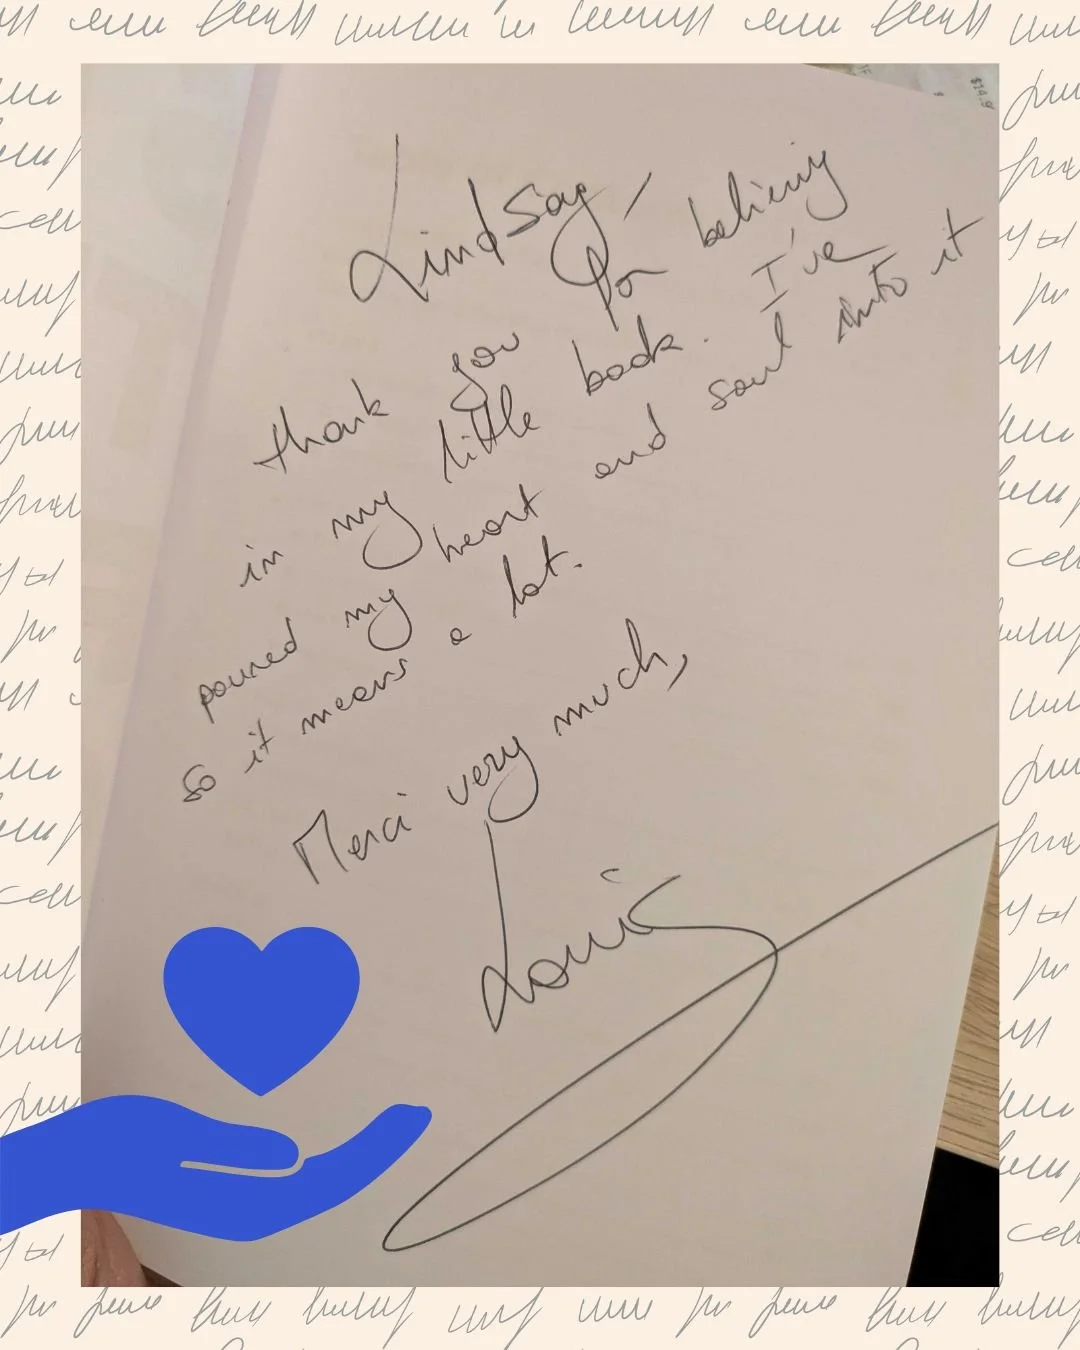 Lindsay,
thank you for believing
in my little book. I've
poured my heart and soul into it
so it means a lot.
Merci very much,
Louis
$14.9